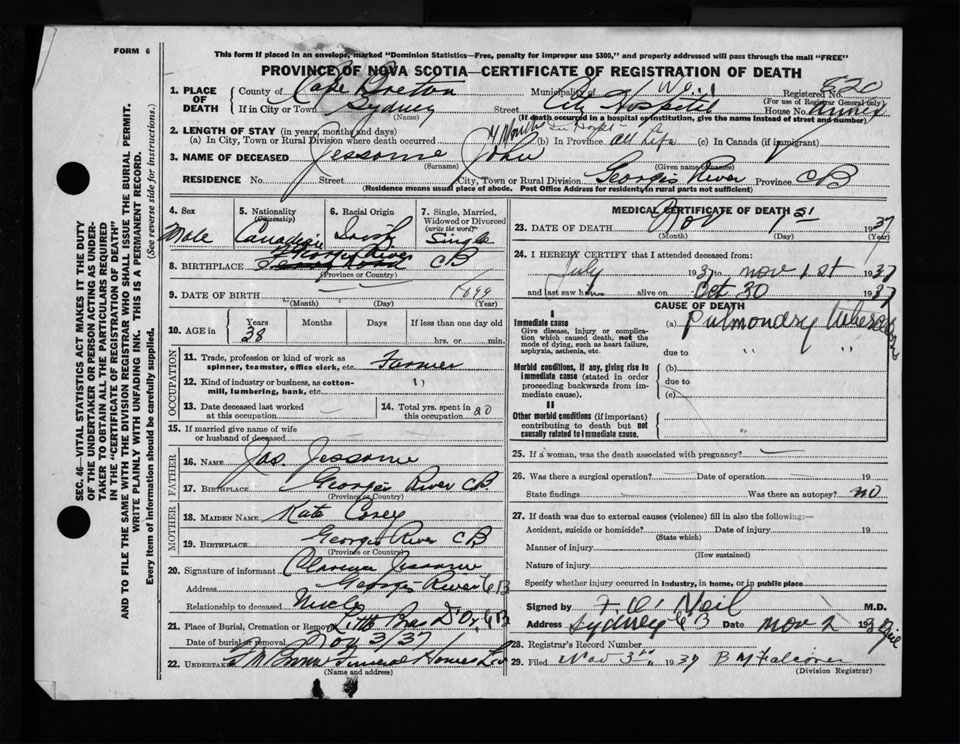 FORM 6
This form if placed in an envelope, marked "Dominion Statistics—Free, penalty for improper use $300," and properly addressed will pass through the mail "FREE"
PROVINCE OF NOVA SCOTIA—CERTIFICATE OF REGISTRATION OF DEATH
SEC. 46—VITAL STATISTICS ACT MAKES IT THE DUTY
OF THE UNDERTAKER OR PERSON ACTING AS UNDER-
TAKER TO OBTAIN ALL THE PARTICULARS REQUIRED
IN THE "CERTIFICATE OF REGISTRATION OF DEATH"
AND TO FILE THE SAME WITH THE DIVISION REGISTRAR WHO SHALL ISSUE THE BURIAL PERMIT.
WRITE PLAINLY WITH UNFADING INK. THIS IS A PERMANENT RECORD.
Every item of information should be carefully supplied. (See reverse side for instructions.)
1. PLACE OF DEATH County of Cape Breton Municipality of Registered No. 820
(For use of Registrar General only)
If in City or Town Sydney Street City Hospital House No. Annex
(Name) (If death occurred in a hospital or institution, give the name instead of street and number)
2. LENGTH OF STAY (in years, months and days)
(a) In City, Town or Rural Division where death occurred 4 Months in Hospt (b) In Province all life (c) In Canada (if immigrant)
3. NAME OF DECEASED Jessome John
(Surname) (Given name or names)
RESIDENCE No. Street City, Town or Rural Division Georges River Province CB
(Residence means usual place of abode. Post Office Address for residents in rural parts not sufficient)
4. Sex Male
5. Nationality (Citizenship) Canadian
6. Racial Origin Irish
7. Single, Married, Widowed or Divorced (write the word) Single
8. BIRTHPLACE Georges River CB
(Province or Country)
9. DATE OF BIRTH 1899
(Month) (Day) (Year)
10. AGE in Years Months Days If less than one day old
38 hrs. or min.
OCCUPATION
11. Trade, profession or kind of work as spinner, teamster, office clerk, etc. Farmer
12. Kind of industry or business, as cotton-mill, lumbering, bank, etc. "
13. Date deceased last worked at this occupation —
14. Total yrs. spent in this occupation 20
15. If married give name of wife or husband of deceased
FATHER
16. NAME Jas. Jessome
17. BIRTHPLACE Georges River CB
(Province or Country)
MOTHER
18. MAIDEN NAME Kate
19. BIRTHPLACE Georges River CB
(Province or Country)
20. Signature of informant Clarence Jessome
Address Georges River CB
Relationship to deceased
21. Place of Burial, Cremation or Removal Little Bras D'Or, CB
Date of burial or removal Nov 3/37
22. UNDERTAKER Funeral Homes
(Name and address)
MEDICAL CERTIFICATE OF DEATH
23. DATE OF DEATH Nov 1st 1937
(Month) (Day) (Year)
24. I HEREBY CERTIFY that I attended deceased from:
July 1937 to Nov 1st 1937
and last saw him alive on Oct. 30 1937
CAUSE OF DEATH
I
Immediate cause
Give disease, injury or complication which caused death, not the mode of dying, such as heart failure, asphyxia, asthenia, etc.
(a) Pulmonary Tuberculosis
due to " "
Morbid conditions, if any, giving rise to immediate cause (stated in order proceeding backwards from immediate cause).
(b)
due to
(c)
II
Other morbid conditions (if important) contributing to death but not causally related to immediate cause.
25. If a woman, was the death associated with pregnancy? —
26. Was there a surgical operation? — Date of operation 19
State findings Was there an autopsy? no
27. If death was due to external causes (violence) fill in also the following:—
Accident, suicide or homicide? Date of injury 19
(State which)
Manner of injury
(How sustained)
Nature of injury
Specify whether injury occurred in industry, in home, or in public place
Signed by F. O'Neil M.D.
Address Sydney CB Date Nov 2 193
28. Registrar's Record Number
29. Filed Nov 3rd 1937
(Division Registrar)